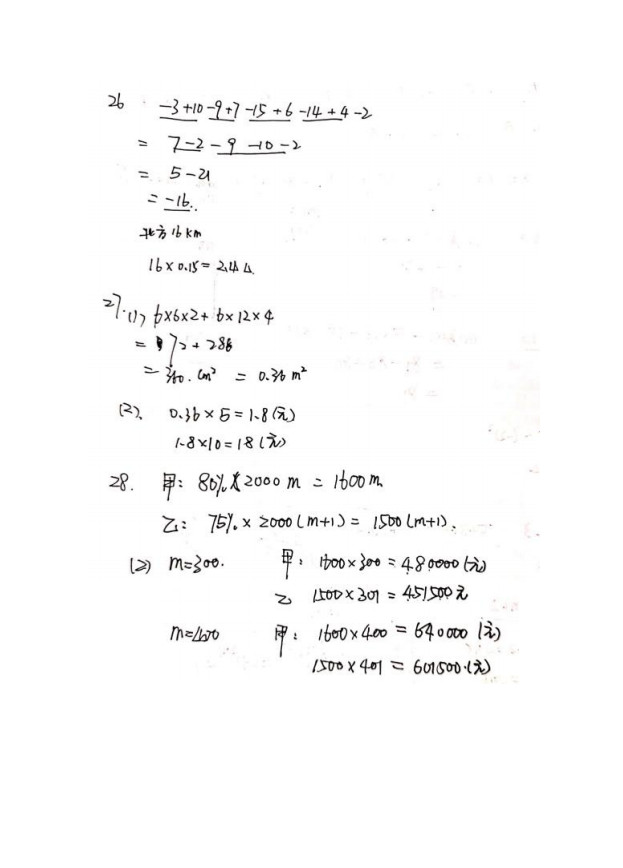 26. -3+10-9+7-15+6-14+4-2
= 7-2-9-10-2
= 5-21
= -16.
北方16km
16×0.15=2.4
27.(1) 6×6×2+6×12×4
= 72+288
= 360.cm² = 0.36m²
(2). 0.36×5=1.8(元)
1.8×10=18(元)
28. 甲: 80%×2000m=1600m
乙: 75%×2000(m+1)=1500(m+1).
(2) m=300. 甲: 1600×300=480000(元)
乙 1500×301=451500元
m=400 甲: 1600×400=640000(元)
1500×401=601500.(元)